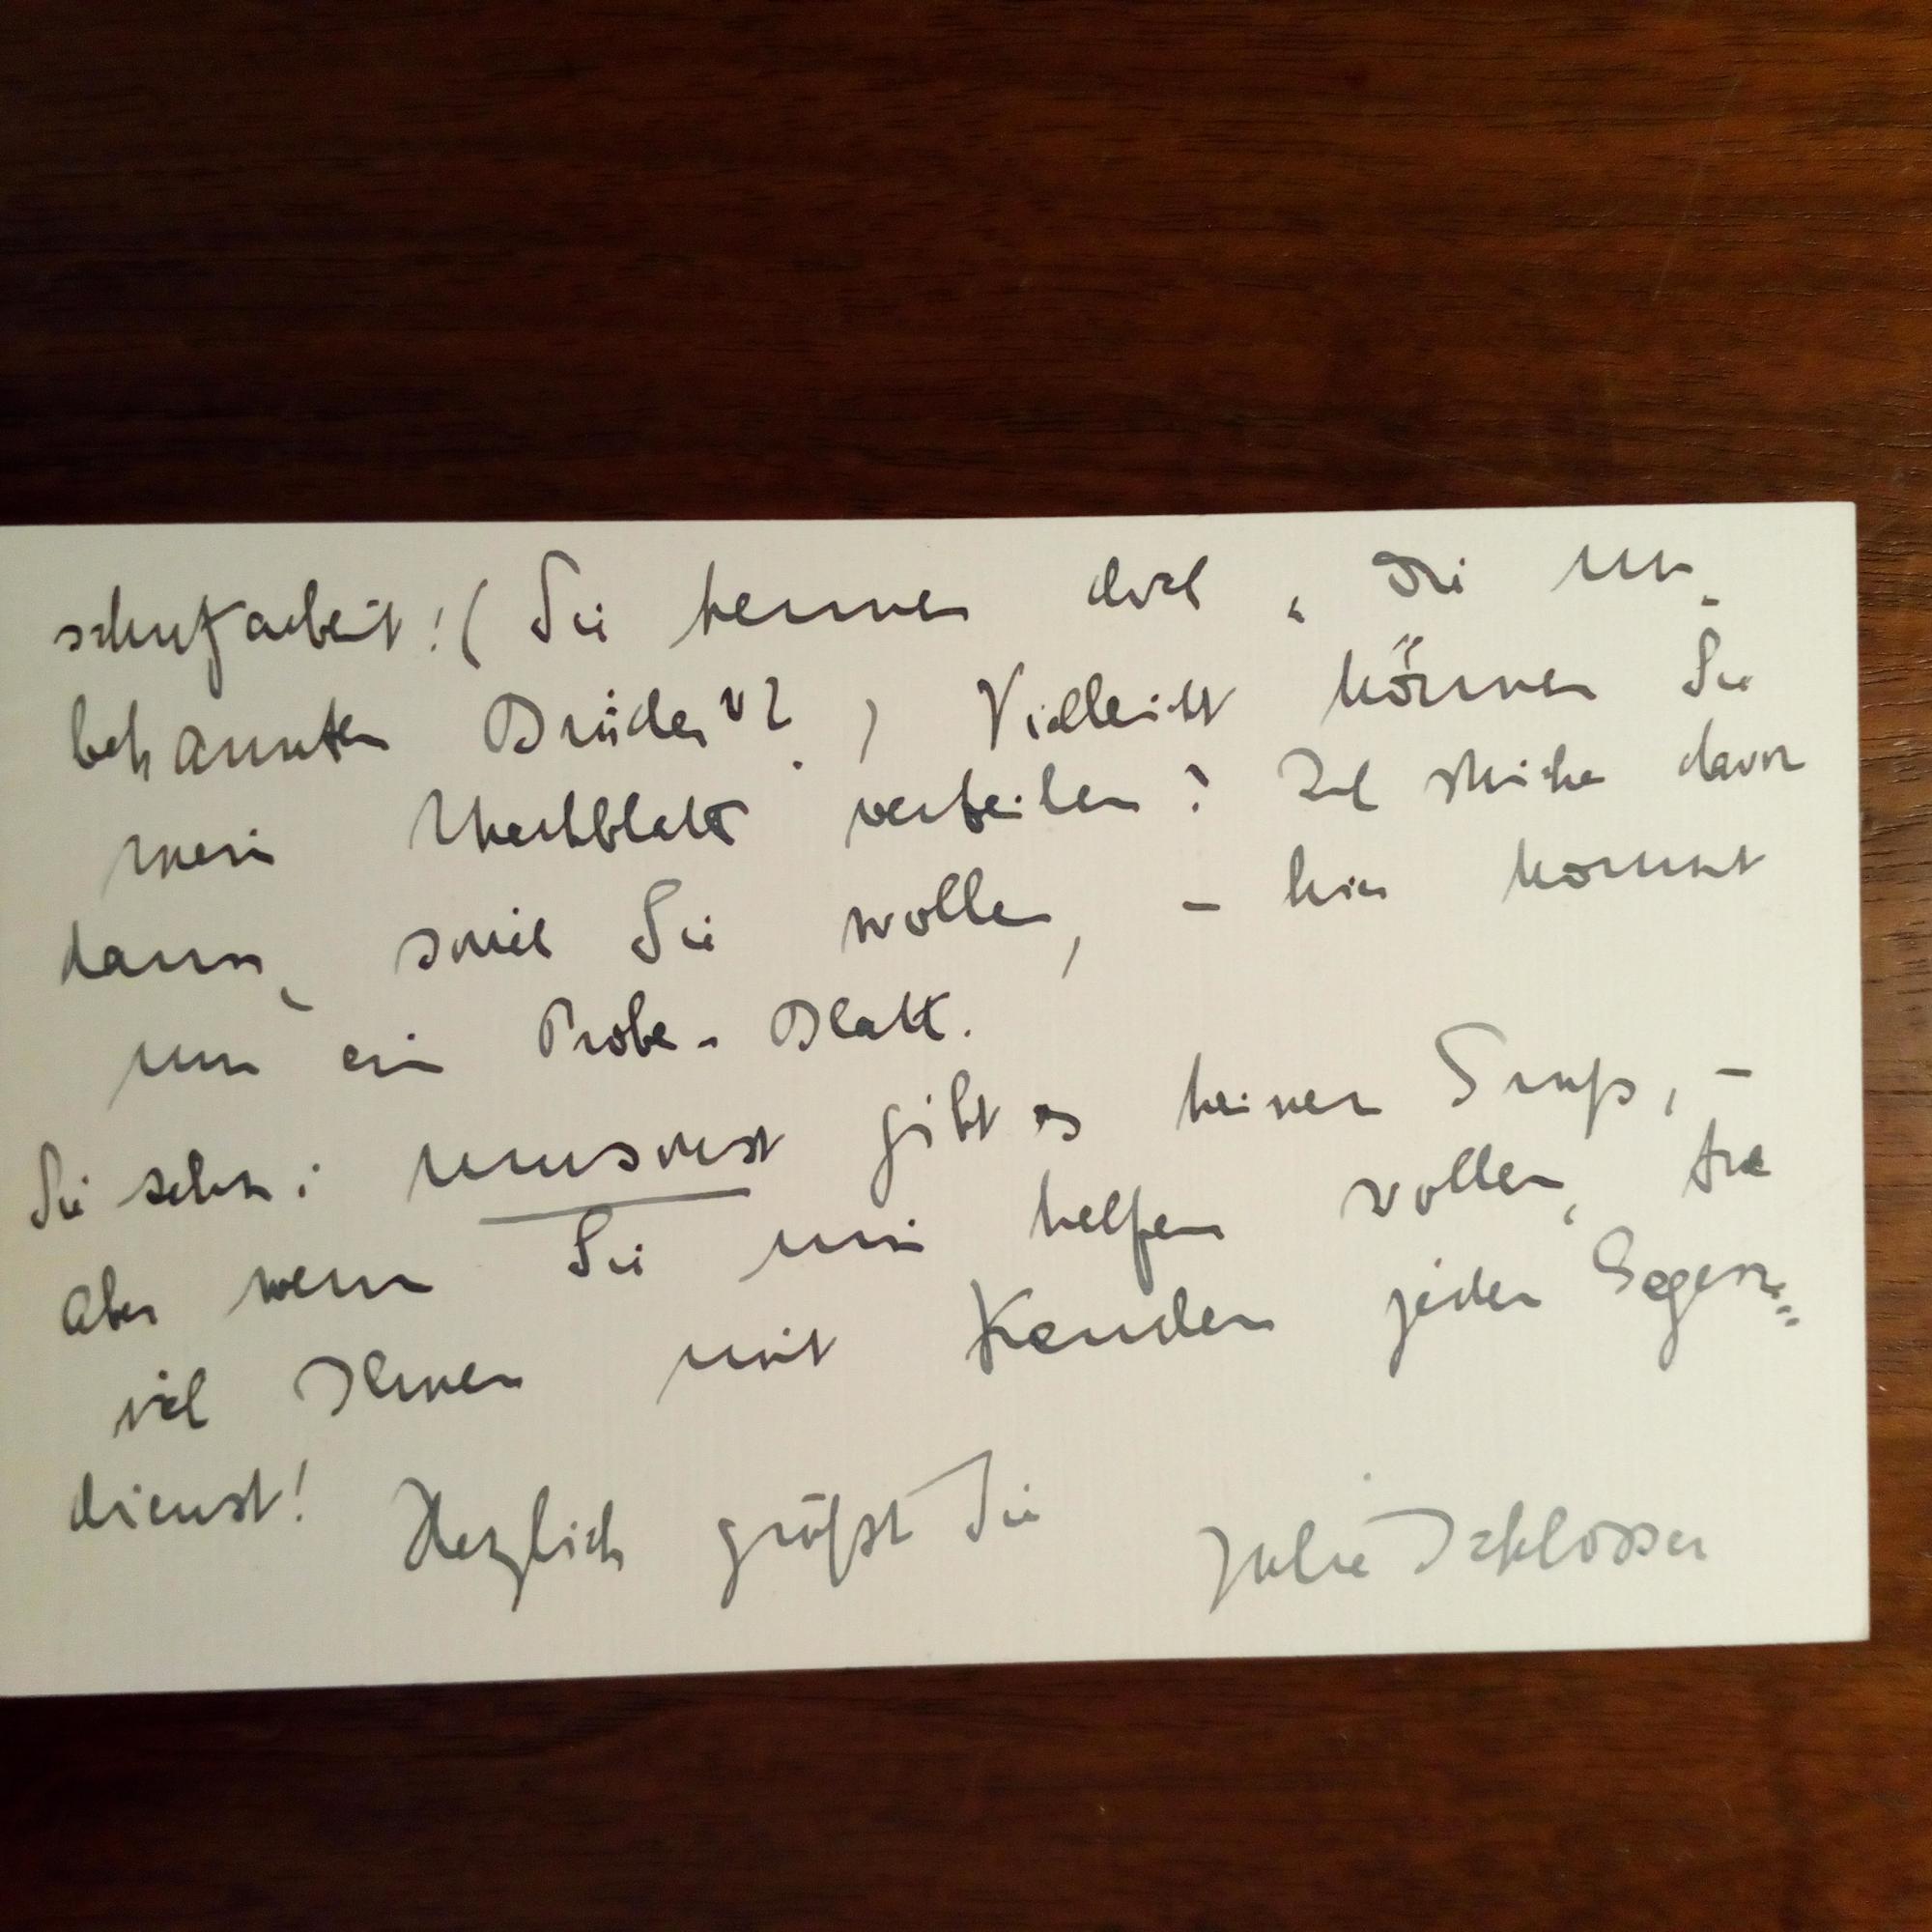 schutzarbeit! (Sie kennen doch „Die un-
bekannten Brüder"?) Vielleicht können Sie
mein Werbblatt verteilen? Ich schicke davon
dann, soviel Sie wollen, – hier kommt
nur ein Probe-Blatt.
Sie sehn: umsonst gibt es keinen Gruß, –
aber wenn Sie mir helfen wollen, tue
ich Ihnen mit Freuden jeden Gegen-
dienst! Herzlich grüßt Sie Julie Schlosser